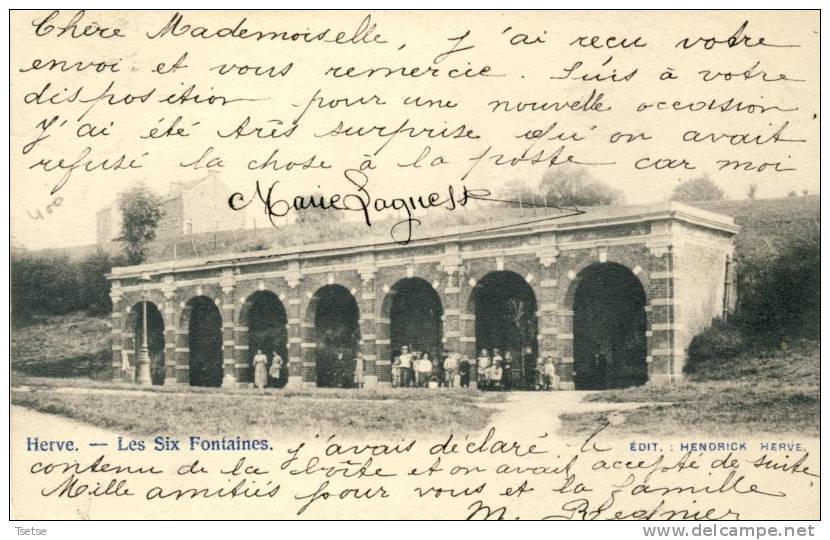 Chère Mademoiselle, j'ai reçu votre
envoi et vous remercie. Suis à votre
disposition pour une nouvelle occasion
J'ai été très surprise qu'on avait
refusé la chose à la poste car moi
400
Marie Lagness
Herve. — Les Six Fontaines.
ÉDIT. : HENDRICK HERVE.
j'avais déclaré le
contenu de la boîte et on avait accepté de suite
Mille amitiés pour vous et la famille
M. Regnier
Tsetse
http://www.delcampe.net